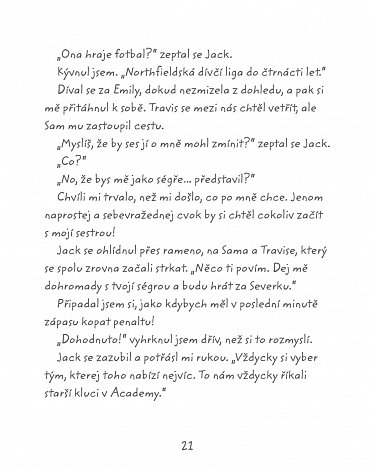 „Ona hraje fotbal?“ zeptal se Jack.
Kývnul jsem. „Northfieldská dívčí liga do čtrnácti let.“
Díval se za Emily, dokud nezmizela z dohledu, a pak si
mě přitáhnul k sobě. Travis se mezi nás chtěl vetřít, ale
Sam mu zastoupil cestu.
„Myslíš, že by ses jí o mně mohl zmínit?“ zeptal se Jack.
„Co?“
„No, že bys mě jako ségře... představil?“
Chvíli mi trvalo, než mi došlo, co po mně chce. Jenom
naprostej a sebevražednej cvok by si chtěl cokoliv začít
s mojí sestrou!
Jack se ohlídnul přes rameno, na Sama a Travise, který
se spolu zrovna začali strkat. „Něco ti povím. Dej mě
dohromady s tvojí ségrou a budu hrát za Severku.“
Připadal jsem si, jako kdybych měl v poslední minutě
zápasu kopat penaltu!
„Dohodnuto!“ vyhrknul jsem dřív, než si to rozmyslí.
Jack se zazubil a potřásl mi rukou. „Vždycky si vyber
tým, kterej toho nabízí nejvíc. To nám vždycky říkali
starší kluci v Academy.“
21